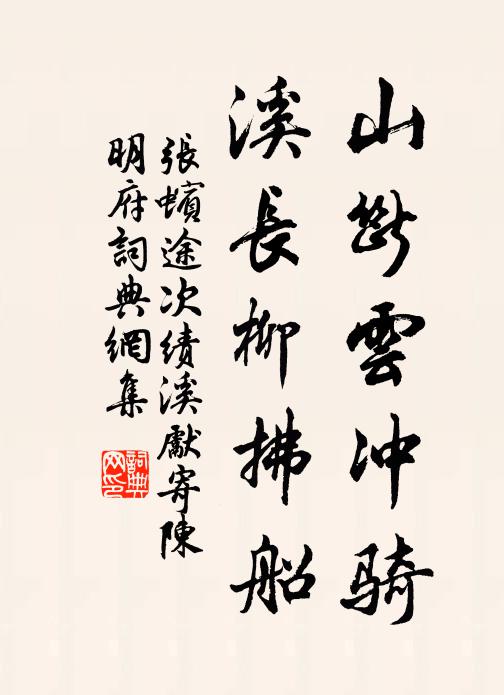 山断雲冲騎
溪長柳拂船
張蠙途次績溪獻寄陳
明府詞典網集
詞典网印